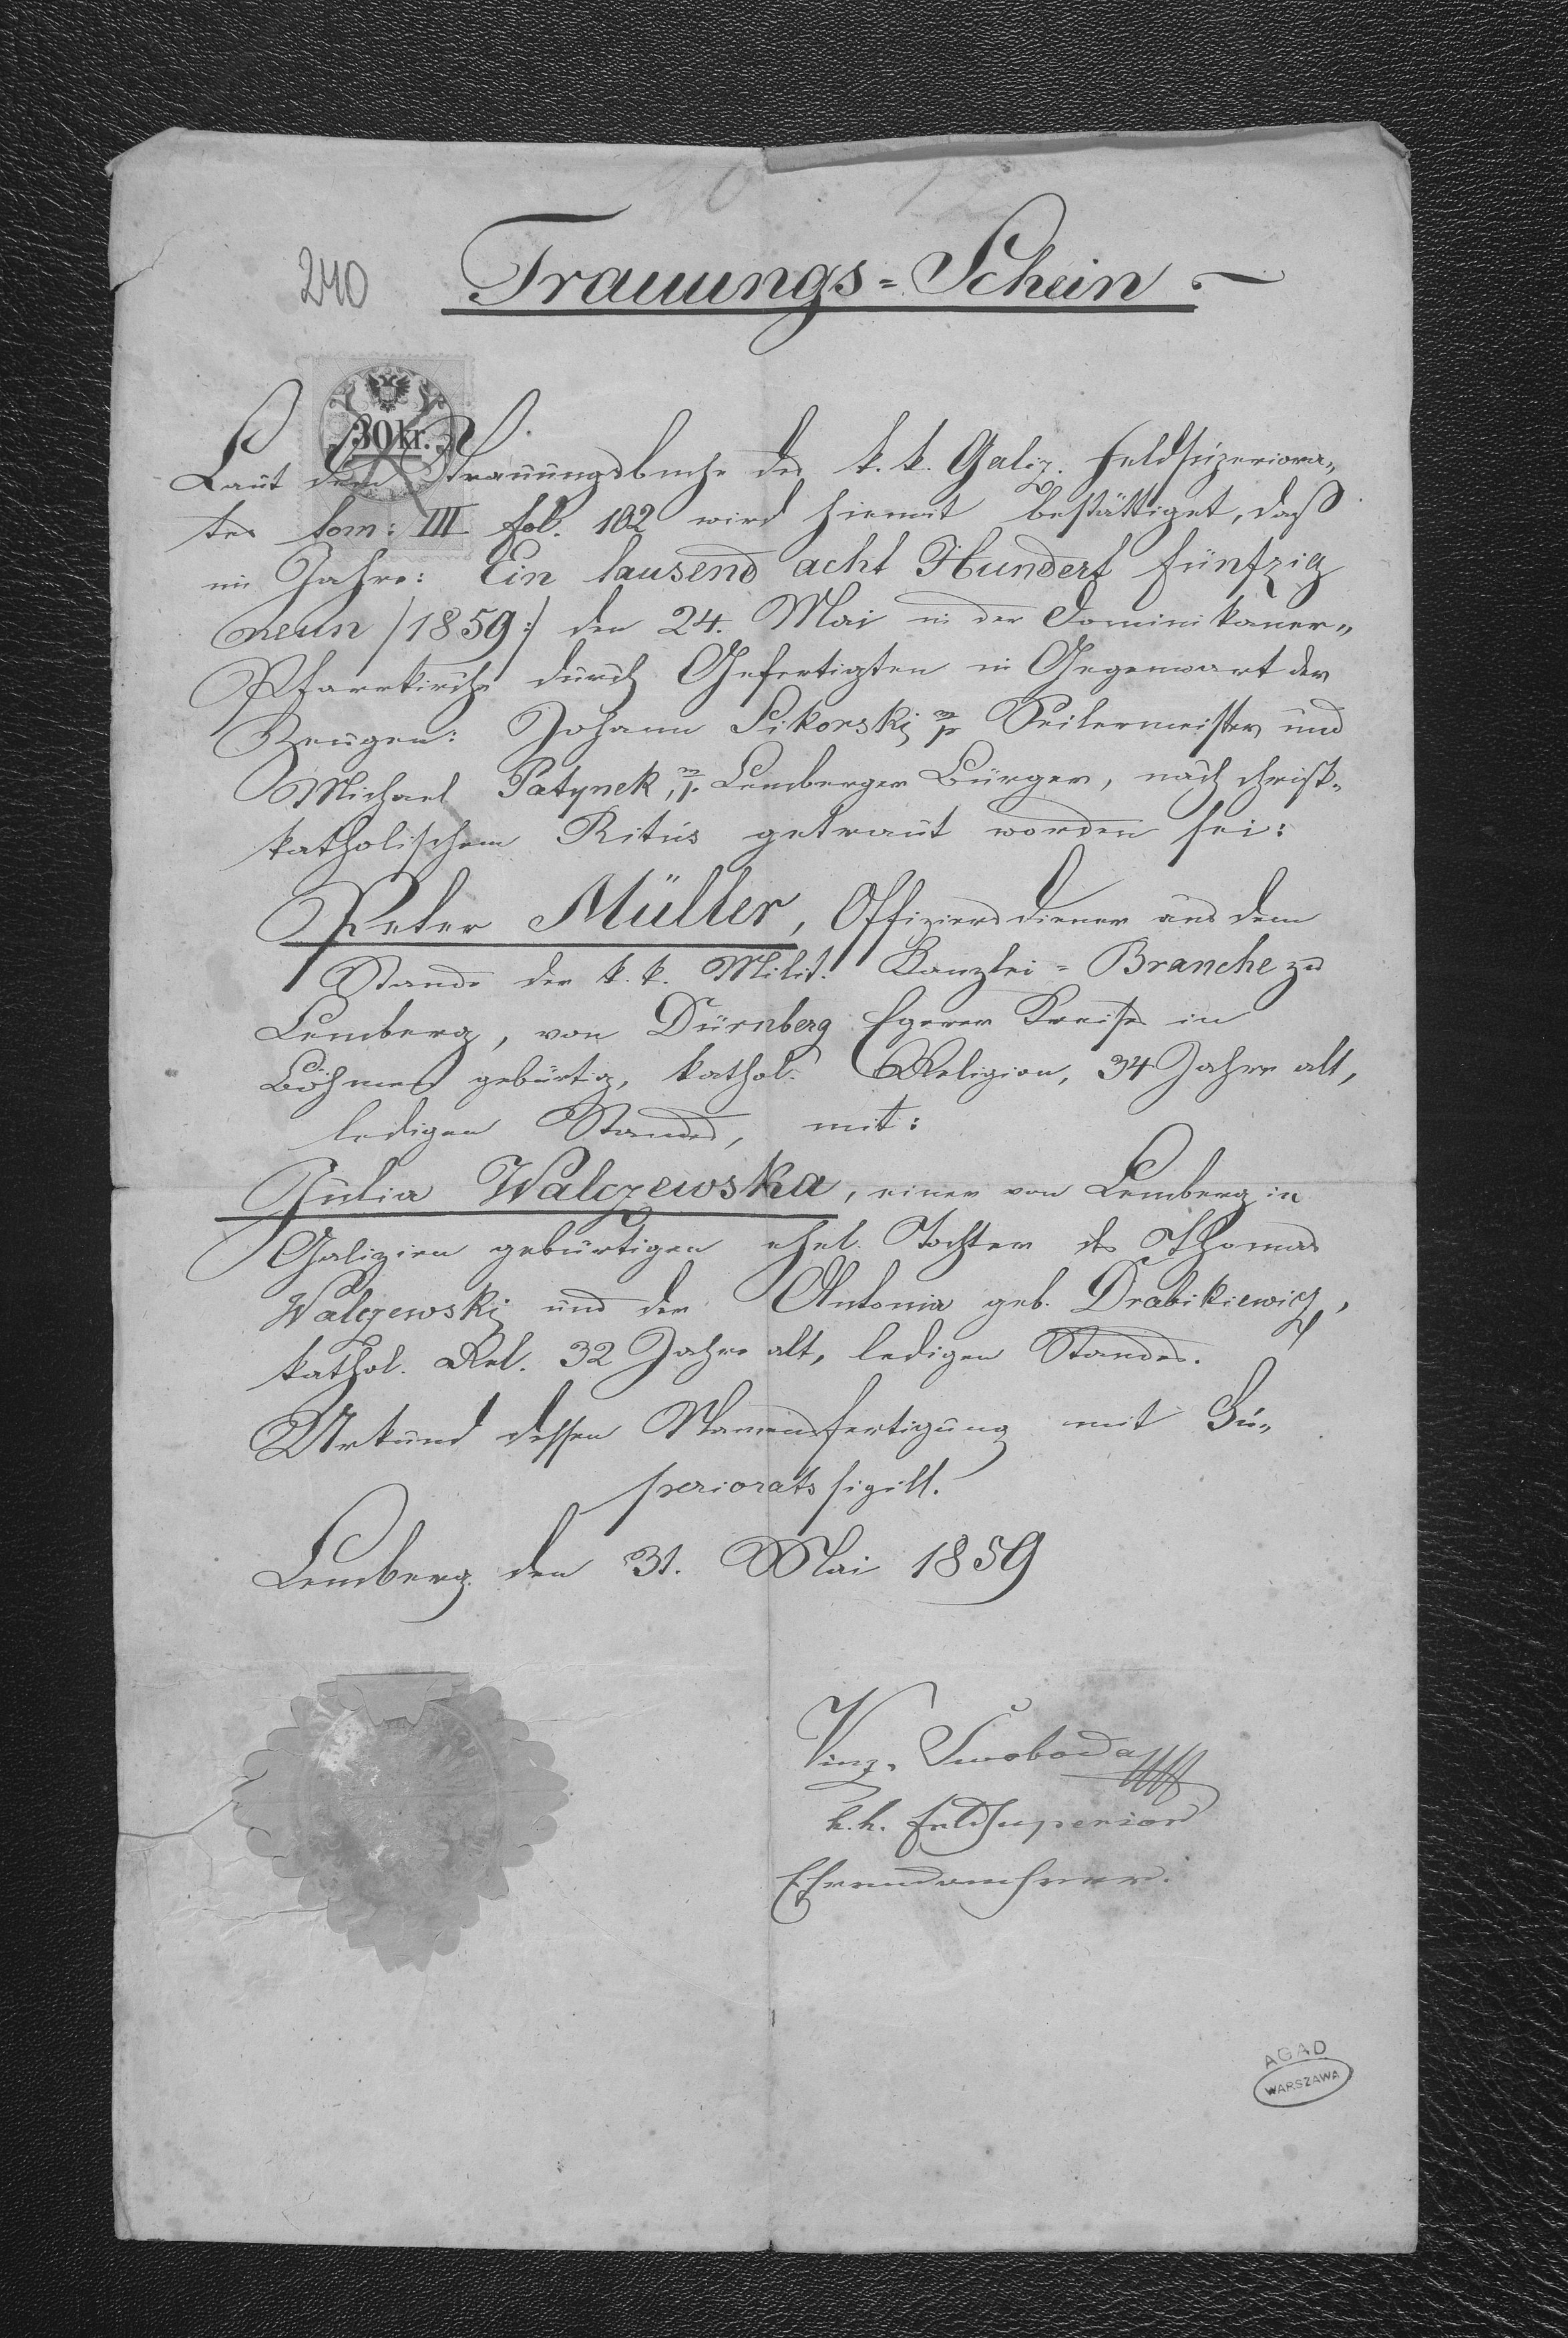 240
Trauungs=Schein.
30 kr.
Laut dem Trauungsbuche des k. k. Galiz. Feldsuperiora„
tes tom: III fol. 102 wird hiemit bestättiget, daß
im Jahre: Ein tausend acht Hundert fünfzig
neun /1859:/ den 24. Mai in der Dominikaner„
Pfarrkirche durch Gefertigten in Gegenwart der
Zeugen: Johann Sikorski mp Seilermeister und
Michael Patynek, mp. Lemberger Bürger, nach christ„
katholischem Ritus getraut worden sei:
Peter Müller, Offiziersdiener aus dem
Stande der k. k. Milit. Kanzlei=Branche zu
Lemberg, von Dürnberg Egerer Kreises in
Böhmen gebürtig, kathol. Religion, 34 Jahre alt,
ledigen Standes, mit:
Julia Walczewska, einer von Lemberg in
Galizien gebürtigen ehel. Tochter des Thomas
Walczewski und der Antonia geb. Drabikiewicz,
kathol. Rel. 32 Jahre alt, ledigen Standes.
Urkund dessen Namensfertigung mit Su„
perioratssigill.
Lemberg den 31. Mai 1859
Vinz. Swoboda
k. k. Feldsuperior
Ehrendomherr.
AGAD
WARSZAWA